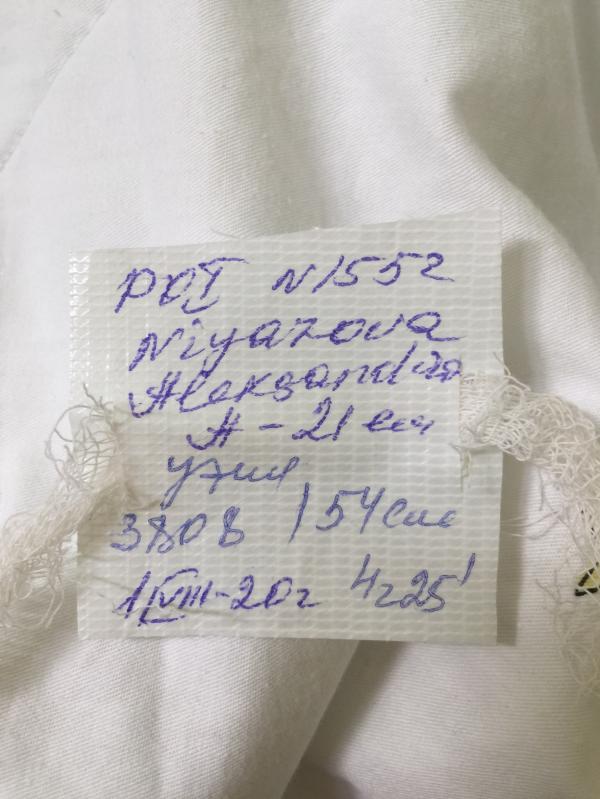 РОТ N1552
Niyazova
Aleksandra
А-21 ели
Ўғил
3808 / 54см
1/VIII-20г 4г25'